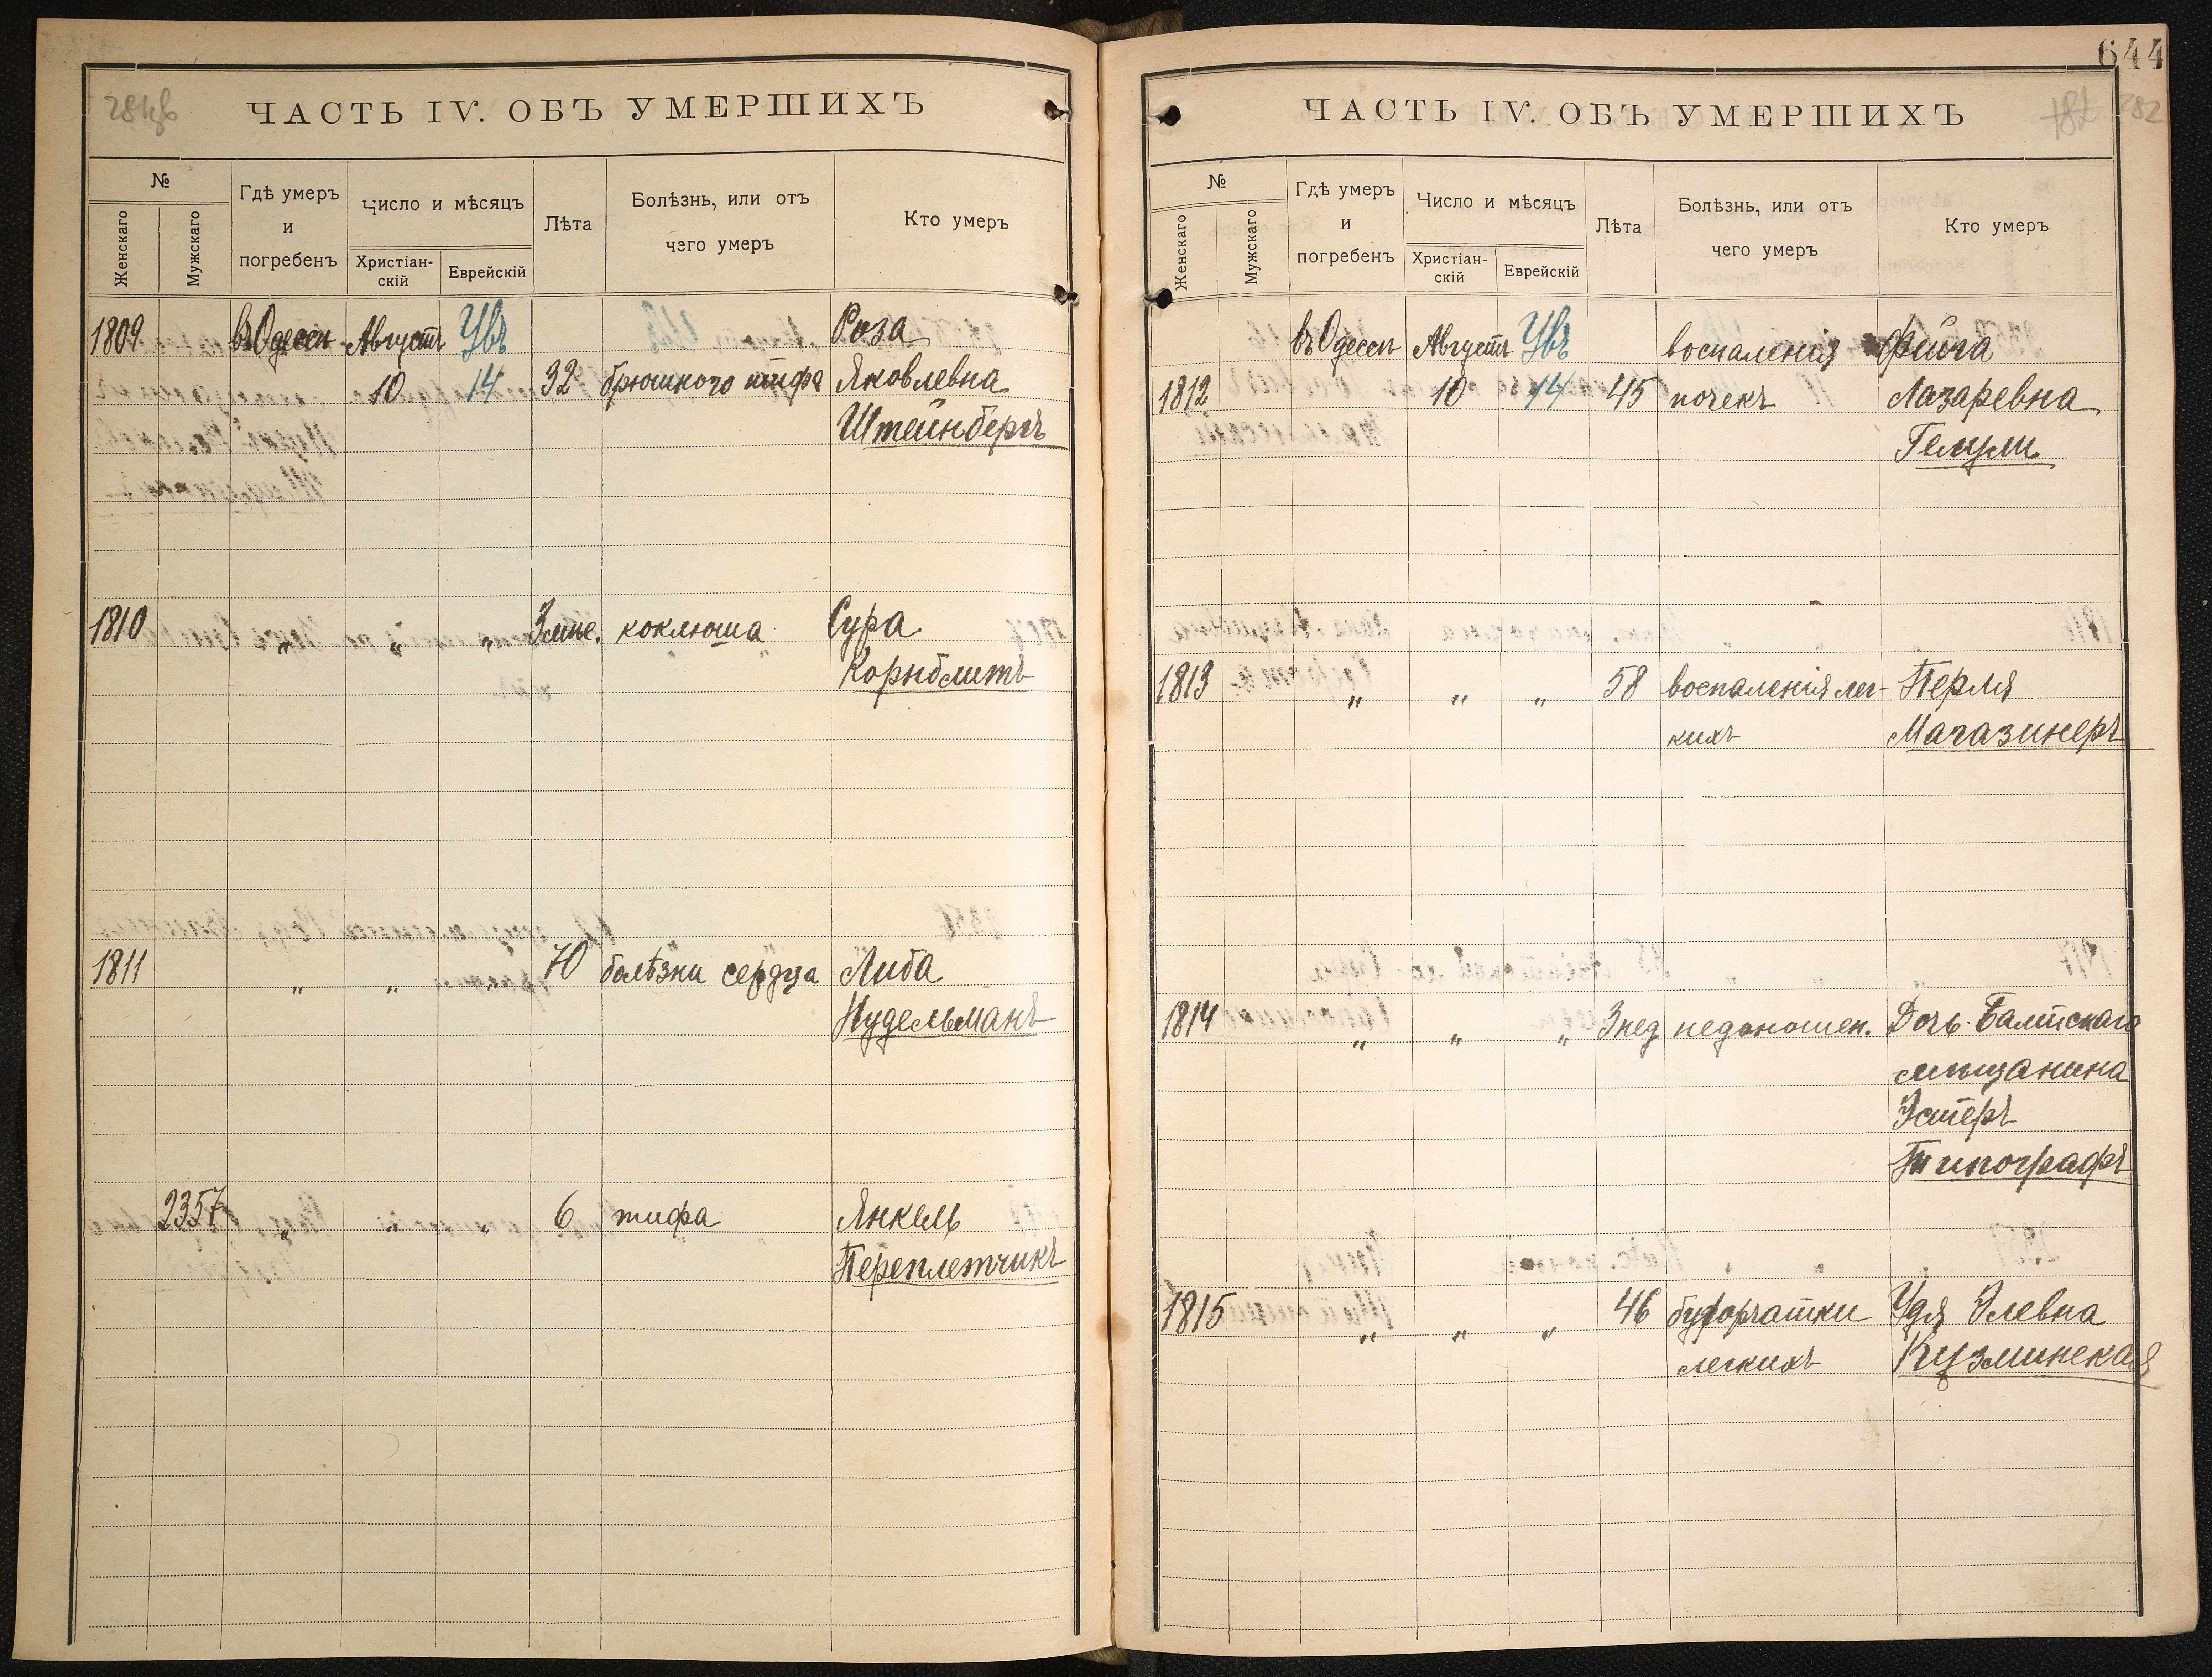 ЧАСТЬ IV. ОБЪ УМЕРШИХЪ
№
Женскаго
Мужскаго
Гдѣ умеръ
и
погребенъ
Число и мѣсяцъ
Христіан-
скій
Еврейскій
Лѣта
Болѣзнь, или отъ
чего умеръ
Кто умеръ
1809 въ Одессѣ Августъ Роза
10 14 32 брюшного тифа Яковлевна
Штейнбергъ
1810 „ „ „ 3 мѣс. коклюша Сура
Корнблитъ
1811 „ „ „ 70 болѣзни сердца Либа
Нудельманъ
2357 „ „ „ 6 тифа Янкель
Переплетчикъ
644
282
ЧАСТЬ IV. ОБЪ УМЕРШИХЪ
№
Женскаго
Мужскаго
Гдѣ умеръ
и
погребенъ
Число и мѣсяцъ
Христіан-
скій
Еврейскій
Лѣта
Болѣзнь, или отъ
чего умеръ
Кто умеръ
въ Одессѣ Августъ воспаленія Фейга
1812 10 14 45 почекъ Лазаревна
1813 „ „ „ 58 воспаленія лег- Перля
кихъ Магазинеръ
1814 „ „ „ 3 нед недоношен. Дочь Балтскаго
мѣщанина
Эстеръ
Типографъ
1815 „ „ „ 46 бугорчатки Удя Элевна
легкихъ Кузминская